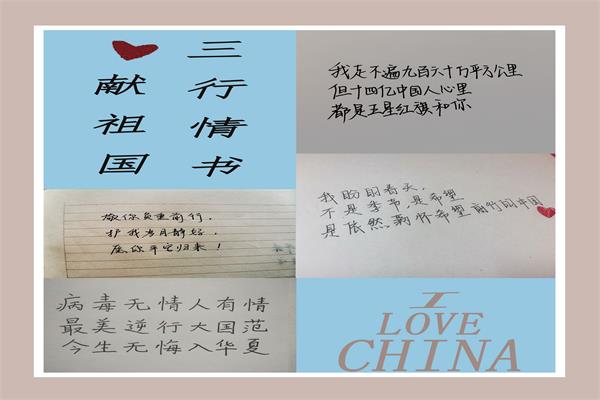 三行情书
献祖国
我走不遍九百六十万平方公里
但十四亿中国人心里
都是五星红旗和你
敬你负重前行，
护我岁月静好，
愿你平安归来！
我盼的春天，
不是季节，是希望
是依然满怀希望前行的中国
病毒无情人有情
最美逆行大国范
今生无悔入华夏
I
LOVE
CHINA